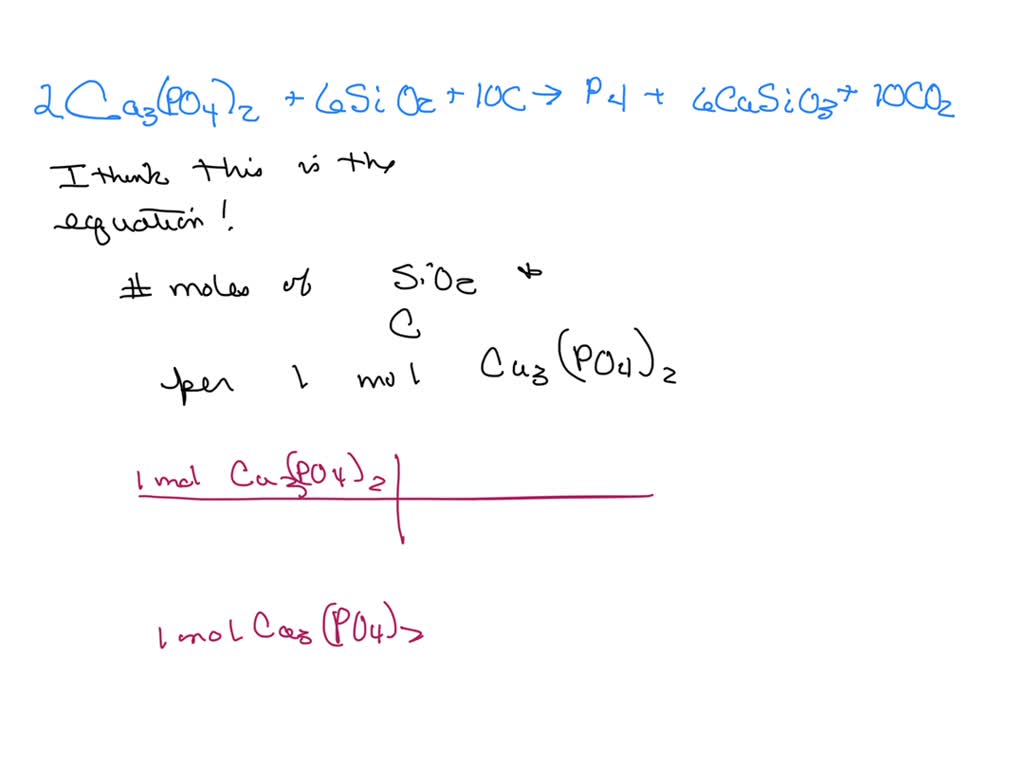 2Ca3(PO4)2 + 6SiO2 + 10C → P4 + 6CaSiO3 + 10CO2
I think this is the
equation!
# moles of SiO2 +
C
per 1 mol Ca3(PO4)2
1 mol Ca3(PO4)2
1 mol Ca3(PO4)2